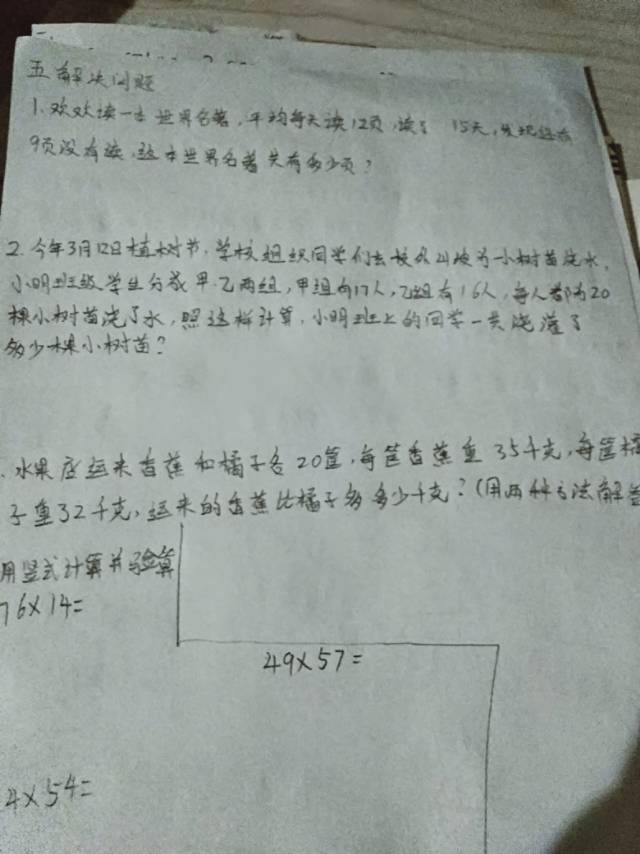 五 解决问题
1. 欢欢读一本世界名著,平均每天读12页,读了 15天,发现还有
9页没有读,这本世界名著共有多少页?
2. 今年3月12日植树节,学校组织同学们去校外山坡为小树苗浇水,
小明班级学生分成甲.乙两组,甲组有17人,乙组有16人,每人都为20
棵小树苗浇了水,照这样计算,小明班上的同学一共浇灌了
多少棵小树苗?
. 水果店运来香蕉和橘子各20筐,每筐香蕉重35千克,每筐橘
子重32千克,运来的香蕉比橘子多多少千克?(用两种方法解答
用竖式计算并验算
76×14=
49×57=
4×54=